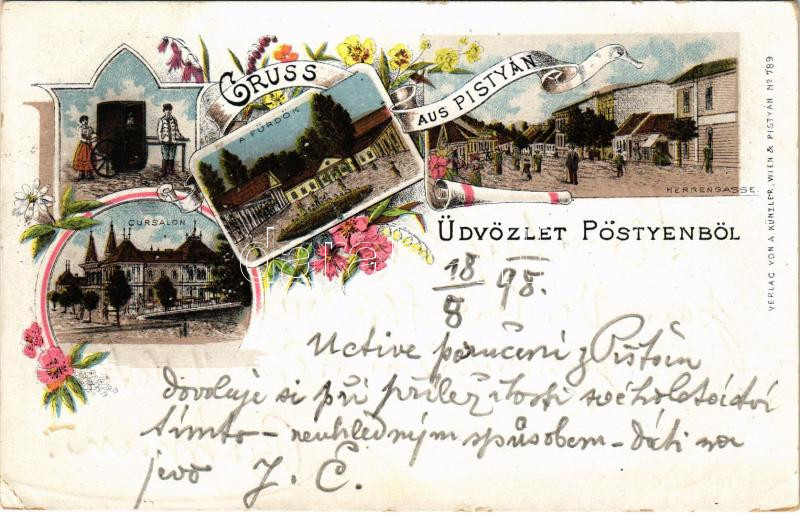 GRUSS
AUS PISTYÁN
A FÜRDŐK
HERRENGASSE.
CURSALON
ÜDVÖZLET PŐSTYENBŐL
VERLAG VON A. KÜNZLER, WIEN & PISTYÁN No 789
18/8 98.
Uctivé poručení z Pištín
dovoluje si při příležitosti svého
tímto – neuhledným způsobem – dáti na
jevo J. E.